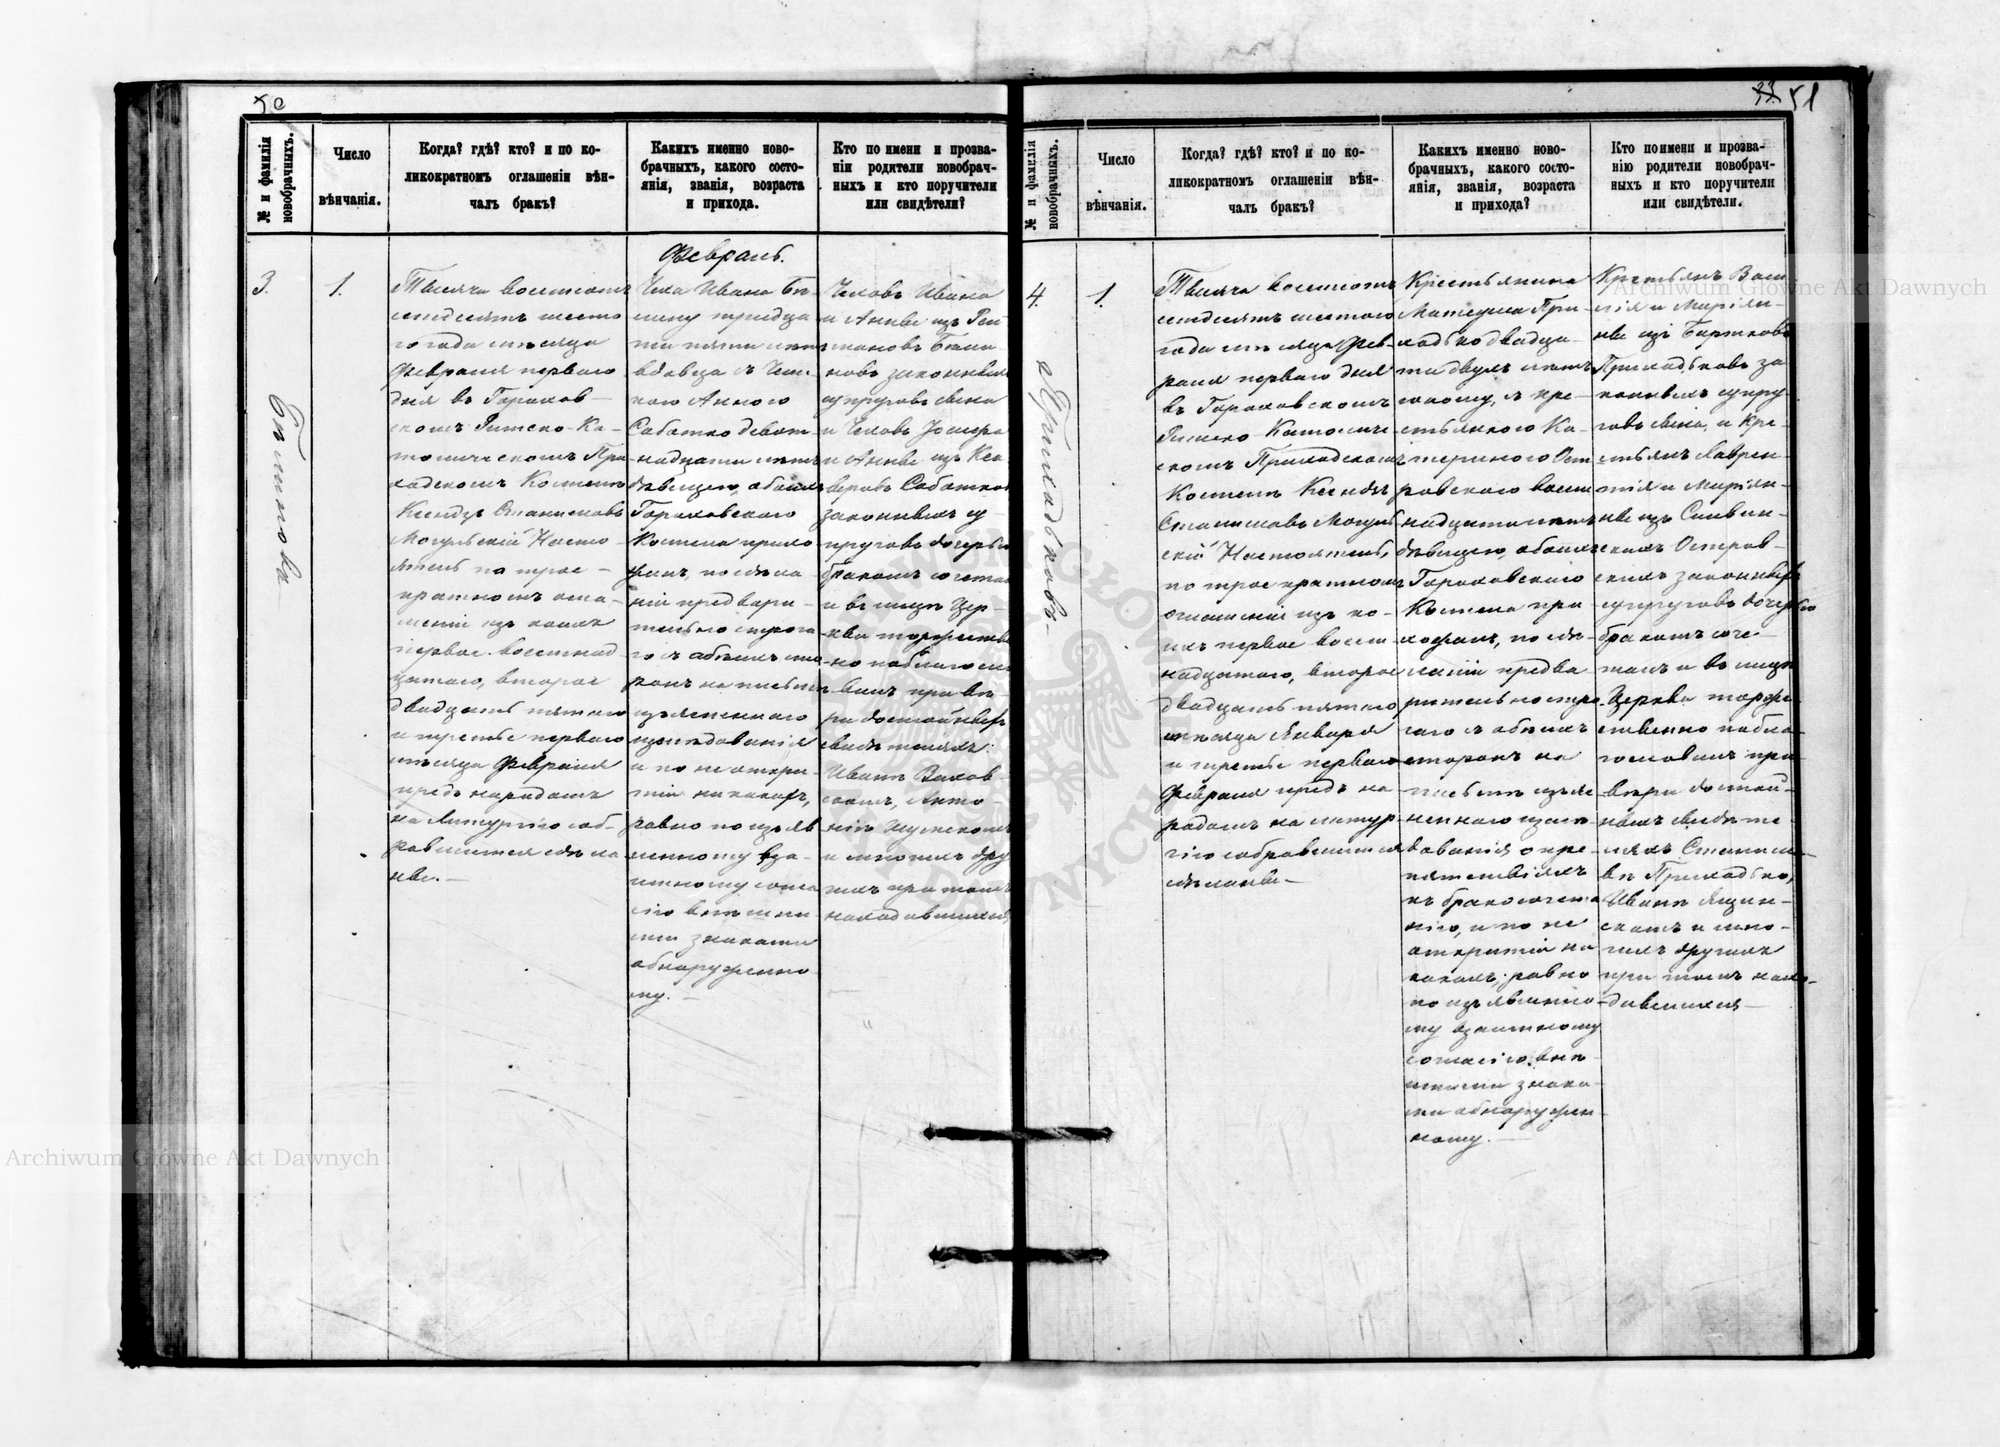 50
№ и фамилія новобрачныхъ.
Число вѣнчанія.
Когда? гдѣ? кто? и по ко-
ликократномъ оглашеніи вѣн-
чалъ бракъ?
Какихъ именно ново-
брачныхъ, какого состо-
янія, званія, возраста
и прихода.
Кто по имени и прозва-
ніи родители новобрач-
ныхъ и кто поручители
или свидѣтели?
Февраль.
3.
1.
Тысяча восемсотъ
семдесятъ шесто
го года мѣсяца
Февраля перваго
дня въ Горохов-
скомъ Римско-Ка-
толическомъ При
ходскомъ Костелѣ
Ксендзъ Станиславъ
Могульскій Насто-
ятель по трое-
кратномъ огла-
шеніи изъ коихъ
первое восемнад
цатаго, второе
двадцать пятаго
и третье перваго
мѣсяца Февраля
предъ народомъ
на Литургію соб-
равшимся сдѣла
ны.—
Чеха Ивана
тридца
ти пяти лѣтъ
вдовца съ Чеш-
кою Анною
Саботко девят-
надцати лѣтъ
дѣвицею, обоихъ
Гороховскаго
Костела прихо
жан, по сдѣла
ніи предвари-
тельно строга
го съ обѣихъ сто
ронъ на письмѣ
изъясненнаго
изслѣдованія
и по не откры-
тіи никакихъ,
равно по изъяв
ленному вза-
имному согла
сію внѣшни
ми знаками
обнаруженно
му.—
Чеховъ Ивана
и Анны изъ
законныхъ
супруговъ сына
и Чеховъ Іосифа
и Анны изъ
Саботковъ
законныхъ су-
пруговъ дочерью
бракомъ сочеталъ
и въ лицѣ Цер-
кви торжествен
но поблагосло-
вилъ при вѣ-
ры достойныхъ
свидѣтеляхъ:
Иванѣ
скомъ, Анто-
ніѣ
и многихъ дру
гихъ при томъ
находившихся
51
№ и фамилія новобрачныхъ.
Число вѣнчанія.
Когда? гдѣ? кто? и по ко-
ликократномъ оглашеніи вѣн-
чалъ бракъ?
Какихъ именно ново-
брачныхъ, какого состо-
янія, званія, возраста
и прихода?
Кто по имени и прозва-
нію родители новобрач-
ныхъ и кто поручители
или свидѣтели.
4
Приходьковъ—
1.
Тысяча восемсотъ
семдесятъ шестого
года мѣсяца Фев-
раля перваго дня
въ Гороховскомъ
Римско-Католиче
скомъ Приходскомъ
Костелѣ Ксендзъ
Станиславъ Могуль
скій Настоятель,
по троекратномъ
оглашеніи изъ ко-
ихъ первое восем
надцатаго, второе
двадцать пятаго
мѣсяца Января
и третье перваго
Февраля предъ на
родомъ на литур
гію собравшимся
сдѣланы—
Крестьянина
Матеуша При
ходько двадца-
ти двухъ лѣтъ
съ кре-
стьянкою Ка-
териною Ост
ровскою восем
надцати лѣтъ
дѣвицею, обоихъ
Гороховскаго
Костела при
хожан, по сдѣ-
ланіи предва
рительно стро
гаго съ обѣихъ
сторонъ на
письмѣ изъяс
неннаго изслѣ
дованія о пре-
пятствіяхъ
къ бракосочета
нію, и по не
открытіи ни
какихъ, равно
по изъявленно
му взаимному
согласію, внѣ
шними знака-
ми обнаружен
ному.—
Крестьянъ Васи-
лія и Маріян-
ны изъ Бартковъ
Приходьковъ за
конныхъ супру
говъ сына, и Кре
стьянъ Лаврен
тія и Маріян-
ны изъ
скихъ Остров-
скихъ законныхъ
супруговъ дочерью
бракомъ соче-
талъ и въ лицѣ
Церкви торже-
ственно побла-
гословилъ при
вѣры достой-
ныхъ свидѣте-
ляхъ Станисла-
вѣ Приходько,
Иванѣ
скомъ и мно-
гихъ другихъ
при томъ нахо-
дившихся—
Archiwum Główne Akt Dawnych
Archiwum Główne Akt Dawnych